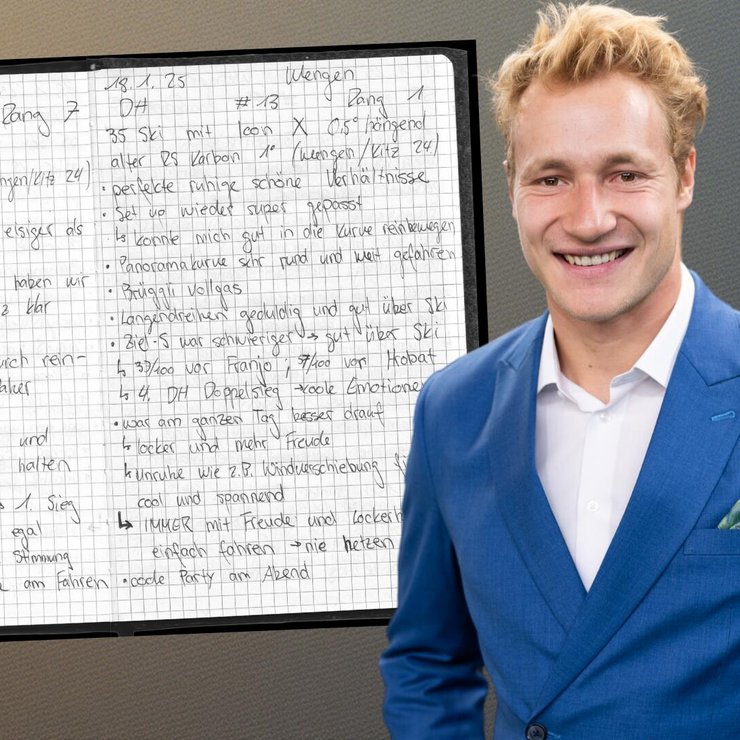 Rang 7
ngen/Kitz 24)
eisiger als
haben wir
z klar
durch rein-
und
halten
1. Sieg
egal
Stimmung
am Fahren
18.1.25 Wengen
DH #13 Rang 1
35 Ski mit Icon X 0,5° hängend
alter RS Karbon 1° (Wengen/Kitz 24)
• perfekte ruhige schöne Verhältnisse
• Set up wieder super gepasst
↳ konnte mich gut in die Kurve reinbewegen
• Panoramakurve sehr rund und weit gefahren
• Brüggli vollgas
• Langendreihen geduldig und gut über Ski
• Ziel-S war schwieriger → gut über Ski
↳ 37/100 vor Franjo ; 57/100 vor Hrobat
↳ 4. DH Doppelsieg → coole Emotione
• war am ganzen Tag besser drauf
↳ locker und mehr Freude
↳ Unruhe wie z.B. Windverschiebung
cool und spannend
↳ IMMER mit Freude und Lockerh
einfach fahren → nie hetzen
• coole Party am Abend